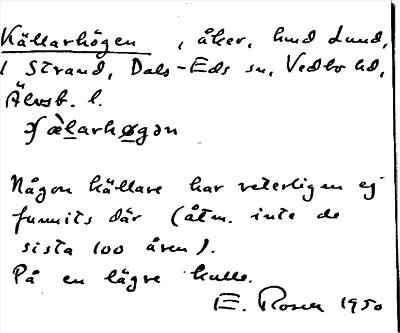 Källarhögen, åker, hmd Lund,
1 Strand, Dals-Eds sn, Vedbo hd,
Älvsb. l.
Någon källare har veterligen ej
funnits där (åtm. inte de
sista 100 åren).
På en lägre kulle.
E. Rosell 1950